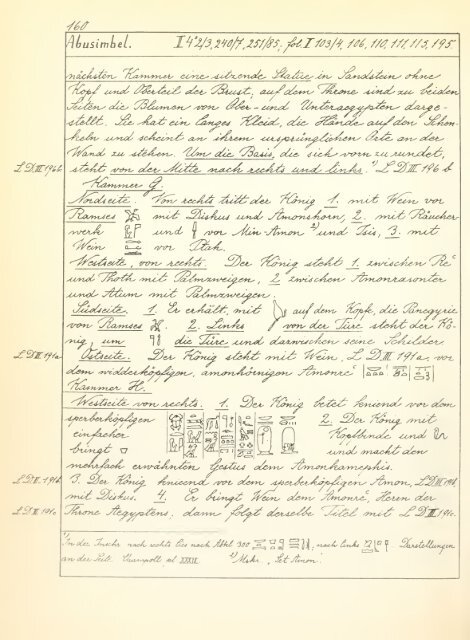 160
Abusimbel. I 4° 2/3, 240/7, 251/85, fol. I 103/4, 106, 110, 111, 113, 195
nächsten Kammer eine sitzende Statue in Sandstein ohne
Kopf und Oberteil der Brust, auf dem Throne sind zu beiden
Seiten die Blumen von Ober- und Unteraegypten darge-
stellt. Sie hat ein langes Kleid, die Hände auf den Schen-
keln und scheint an ihrem ursprünglichen Orte an der
Wand zu stehen. Um die Basis, die sich vorn zu rundet,
L.D.III 196b steht von der Mitte nach rechts und links: L.D.III 196 b
Kammer G.
Nordseite. Von rechts tritt der König 1. mit Wein vor
Ramses mit Diskus und Amonshorn, 2. mit Räucher-
werk und vor Min Amon 2) und Isis, 3. mit
Wein vor Ptah.
Westseite, von rechts. Der König steht 1. zwischen Re
und Thoth mit Palmzweigen, 2 zwischen Amonrasonter
und Atum mit Palmzweigen.
Südseite. 1. Er erhält, mit auf dem Kopfe, die Panegyrie
von Ramses. 2. Links von der Türe steht der Kö-
nig, um die Türe und darwischen seine Schilder
L.D.III 191a. Ostseite. Der König steht mit Wein, L.D.III 191a: vor
dem widderköpfigen, amonhörnigen Amonrē
Kammer H.
Westseite von rechts. 1. Der König betet knieend vor dem
sperberköpfigen 2. Der König mit
einfacher Kopfbinde und
bringt und macht den
mehrfach erwähnten Gestus dem Amonkamephis.
L.D.III. 191b 3. Der König knieend vor dem sperberköpfigen Amon, L.D.III 191b
mit Diskus. 4. Er bringt Wein dem Amonrē, Herrn der
L.D.III 191c. Throne Aegyptens; dann folgt derselbe Titel mit L.D.III 191c.
1) In der Inschr. nach rechts lies nach 300 ; nach links . Darstellungen
an der Seite Champoll. 2) Mskr. „Set Amon“.